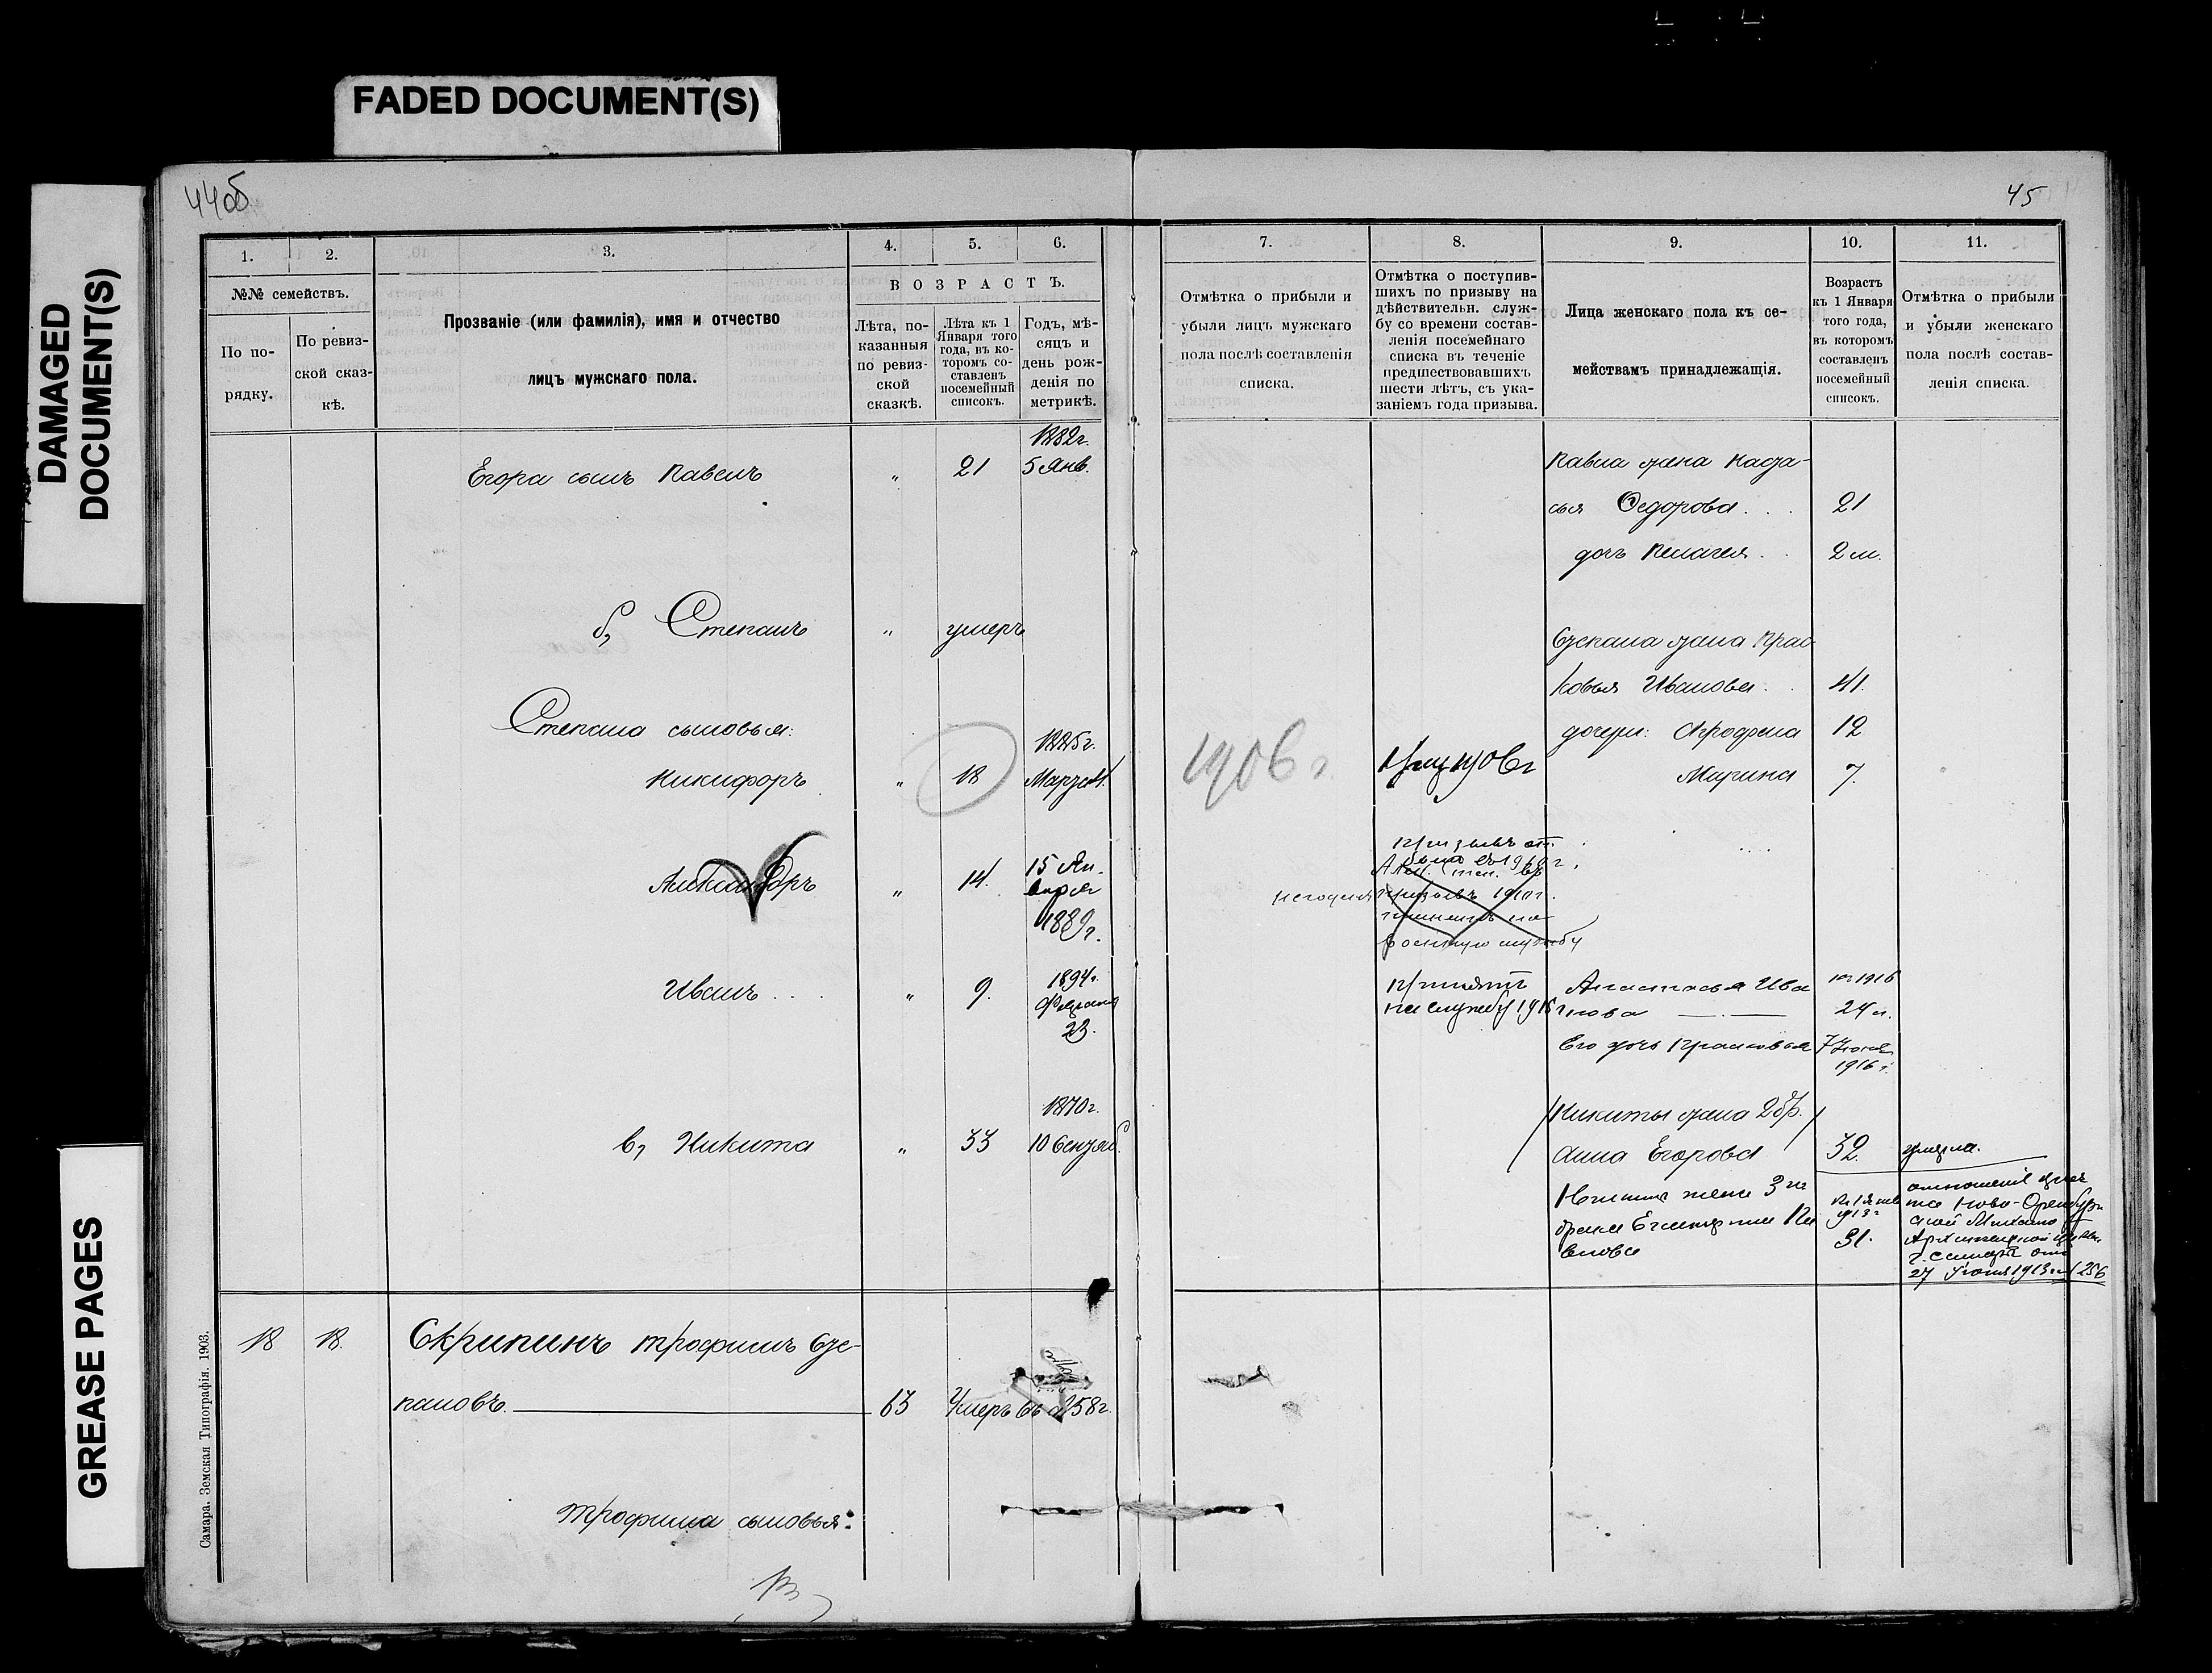 FADED DOCUMENT(S)
DAMAGED
DOCUMENT(S)
GREASE PAGES
44об
1.
2.
3.
4.
5.
6.
№№ семействъ.
По по-
рядку.
По ревиз-
ской сказ-
кѣ.
Прозваніе (или фамилія), имя и отчество
лицъ мужскаго пола.
ВОЗРАСТЪ.
Лѣта, по-
казанныя
по ревиз-
ской
сказкѣ.
Лѣта къ 1
Января того
года, въ ко-
торомъ со-
ставленъ
посемейный
списокъ.
Годъ, мѣ-
сяцъ и
день рож-
денія по
метрикѣ.
1882г.
Егора сынъ Павелъ „ 21 5 Янв.
б, Степанъ „ умеръ
Степана сыновья:
1885г.
Никифоръ „ 18 Март
Александръ „ 14. 15 Ян-
варя
1889 г.
Иванъ „ 9. 1894г.
Февраля
23.
1870г.
в, Никита „ 33 10 Сентяб.
18 18. Скрипинъ Трофимъ Сте-
пановъ. 63 Умеръ въ 1858г.
Трофима сыновья:
Самара. Земская Типографія. 1903.
45
7.
8.
9.
10.
11.
Отмѣтка о прибыли и
убыли лицъ мужскаго
пола послѣ составленія
списка.
Отмѣтка о поступив-
шихъ по призыву на
дѣйствительн. служ-
бу со времени состав-
ленія посемейнаго
списка въ теченіе
предшествовавшихъ
шести лѣтъ, съ ука-
заніемъ года призыва.
Лица женскаго пола къ се-
мействамъ принадлежащія.
Возрастъ
къ 1 Января
того года,
въ которомъ
составленъ
посемейный
списокъ.
Отмѣтка о прибыли
и убыли женскаго
пола послѣ состав-
ленія списка.
Павла жена Ната-
сья Федорова 21
дочь Пелагея 2 м.
Степана жена Прас-
ковья Иванова 41.
дочери: Афрофена 12
Марина 7.
1906 г
1906г
призывъ от
1910г.
призывъ 1910г.
военную службу
принятъ
на службу 1915г
Анастасья Ива
нова
на 1916
24 л.
Его дочь Прасковья 7 Іюля
1916 г.
Никиты жена 2 бр.
Анна Егорова 32. умерла.
Никиты жена 3 го
брака Екатерина Па
влова
на 1 янв
1913 г
31.
Ново-Оренбург
ской Михаило
Архангельской церкви
г. Самары отъ
27 Іюня 1913 г. № 256